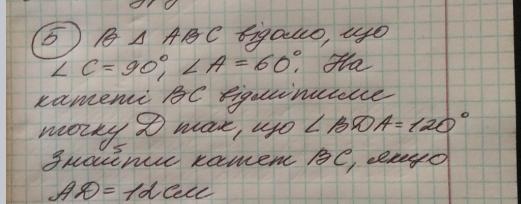 5 В Δ ABC відомо, що
∠C = 90°, ∠A = 60°. На
катеті BC відмітили
точку D так, що ∠BDA = 120°
Знайти катет BC, якщо
AD = 12 см